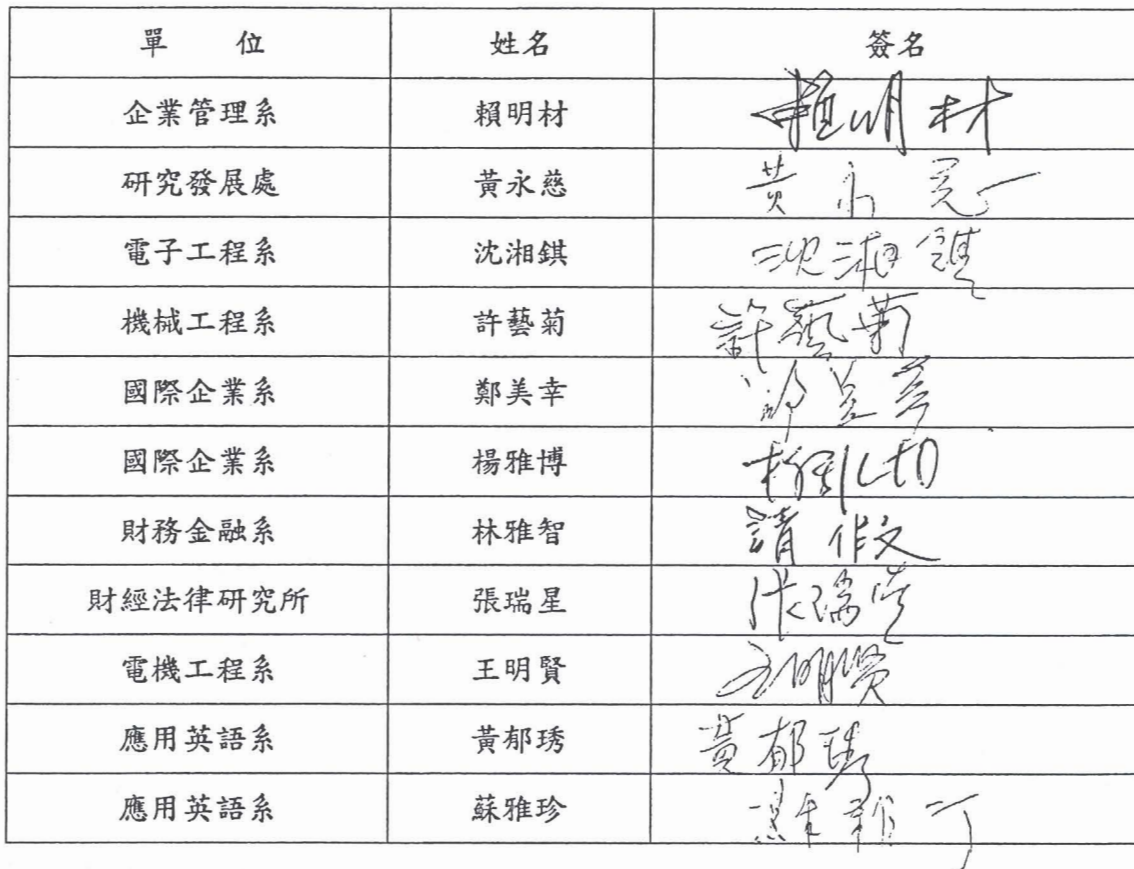 單 位 姓名 簽名
企業管理系 賴明材 賴明材
研究發展處 黃永慈 黃永慈
電子工程系 沈湘錤 沈湘錤
機械工程系 許藝菊 許藝菊
國際企業系 鄭美幸
國際企業系 楊雅博
財務金融系 林雅智 請假
財經法律研究所 張瑞星 張瑞星
電機工程系 王明賢 王明賢
應用英語系 黃郁琇 黃郁琇
應用英語系 蘇雅珍